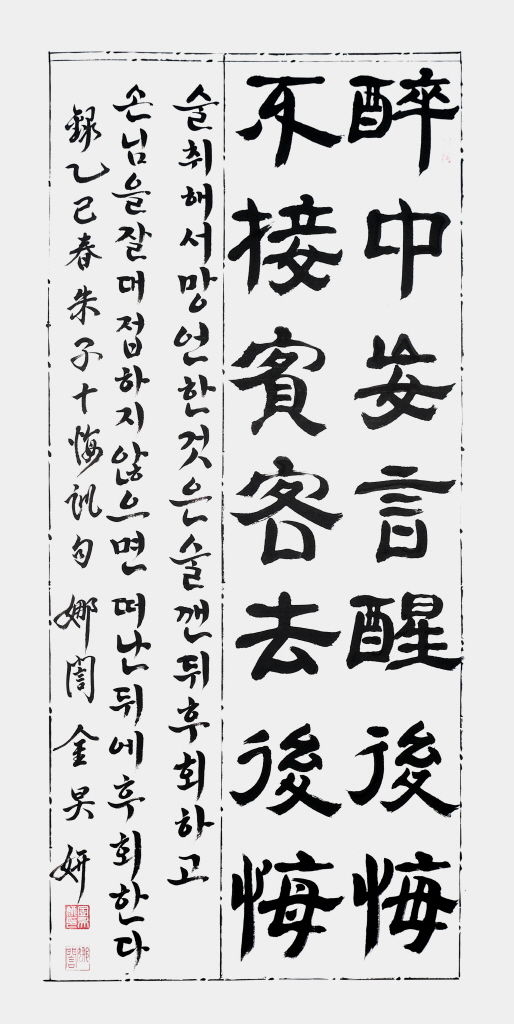 醉中妄言醒後悔
不接賓客去後悔
술취해서망언한것은술깬뒤후회하고
손님을잘대접하지않으면떠난뒤에후회한다
錄乙巳春朱子十悔訓句 娜誾金昊妍